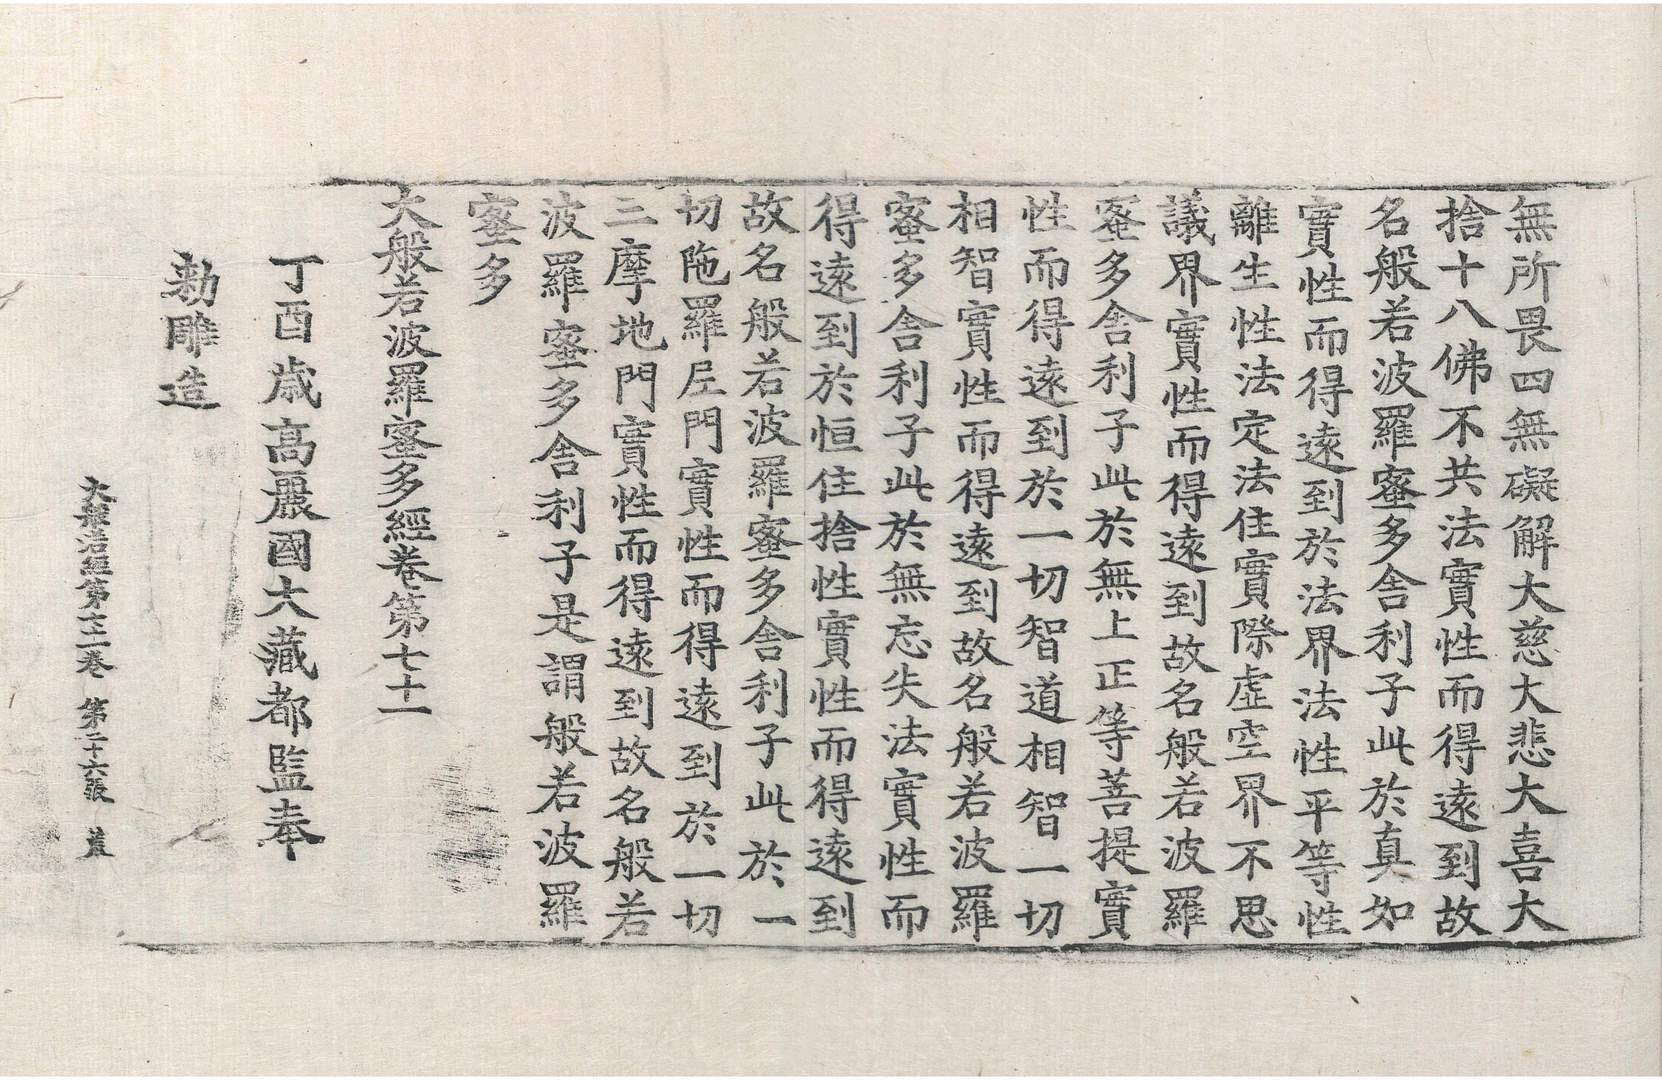 無所畏四無礙解大慈大悲大喜大
捨十八佛不共法實性而得遠到故
名般若波羅蜜多舍利子此於真如
實性而得遠到於法界法性平等性
離生性法定法住實際虛空界不思
議界實性而得遠到故名般若波羅
蜜多舍利子此於無上正等菩提實
性而得遠到於一切智道相智一切
相智實性而得遠到故名般若波羅
蜜多舍利子此於無忘失法實性而
得遠到於恒住捨性實性而得遠到
故名般若波羅蜜多舍利子此於一
切陁羅尼門實性而得遠到於一切
三摩地門實性而得遠到故名般若
波羅蜜多舍利子是謂般若波羅
蜜多
大般若波羅蜜多經卷第七十一
丁酉歲高麗國大藏都監奉
勑雕造
大般若經第七十一卷 第二十六張 荒